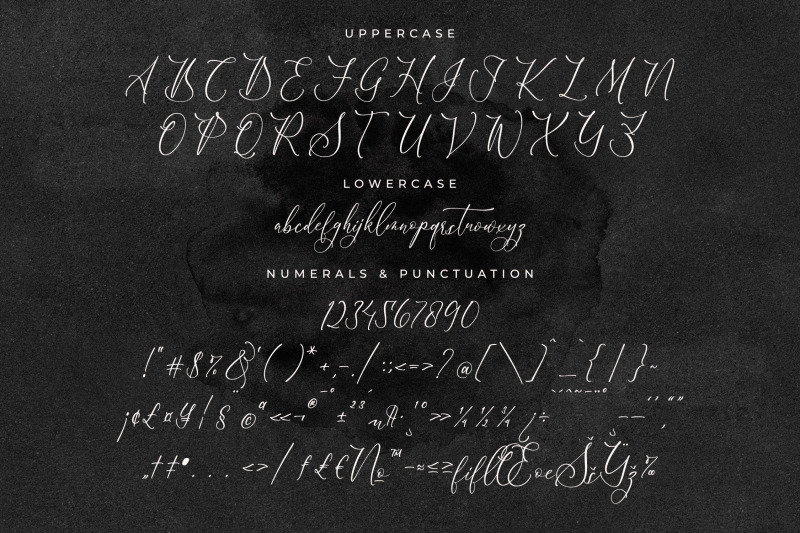 UPPERCASE
A B C D E F G H I J K L M N
O P Q R S T U V W X Y Z
LOWERCASE
abcdefghijklmnopqrstuvwxyz
NUMERALS & PUNCTUATION
1234567890
!"#$%&'()*+,-./:;<=>?@[\]^_`{|}~
¡¢£¤¥¦§©ª«¬®¯°±²³´µ¶·¸¹º»¼½¾¿÷–—‘’‚“”
„†‡•...‹›⁄ƒ₤€№™−≈≤≥fiflŒœŠšŸž‰